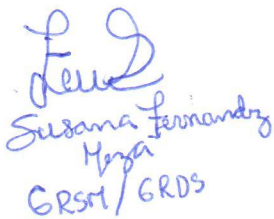 Susana Fernandz
Meza
GRSM / GRDS